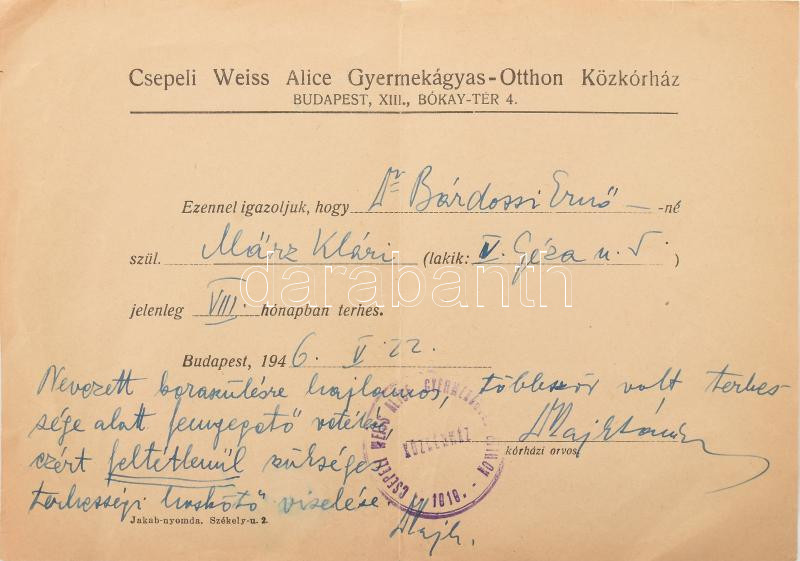 Csepeli Weiss Alice Gyermekágyas-Otthon Közkórház
BUDAPEST, XIII., BÓKAY-TÉR 4.
Ezennel igazoljuk, hogy Dr Bárdossi Ernő -né
szül. März Klári (lakik: V. Géza u. 5 )
jelenleg VIII. hónapban terhes.
Budapest, 1946. V 22.
Nevezett koraszülésre hajlamos, többször volt terhes-
sége alatt fenyegető vetélés,
ezért feltétlenül szükséges
terhességi haskötő viselése.
kórházi orvos
CSEPELI WEISS ALICE
KÖZKÓRHÁZ
Jakab-nyomda. Székely-u. 2.
darabanth